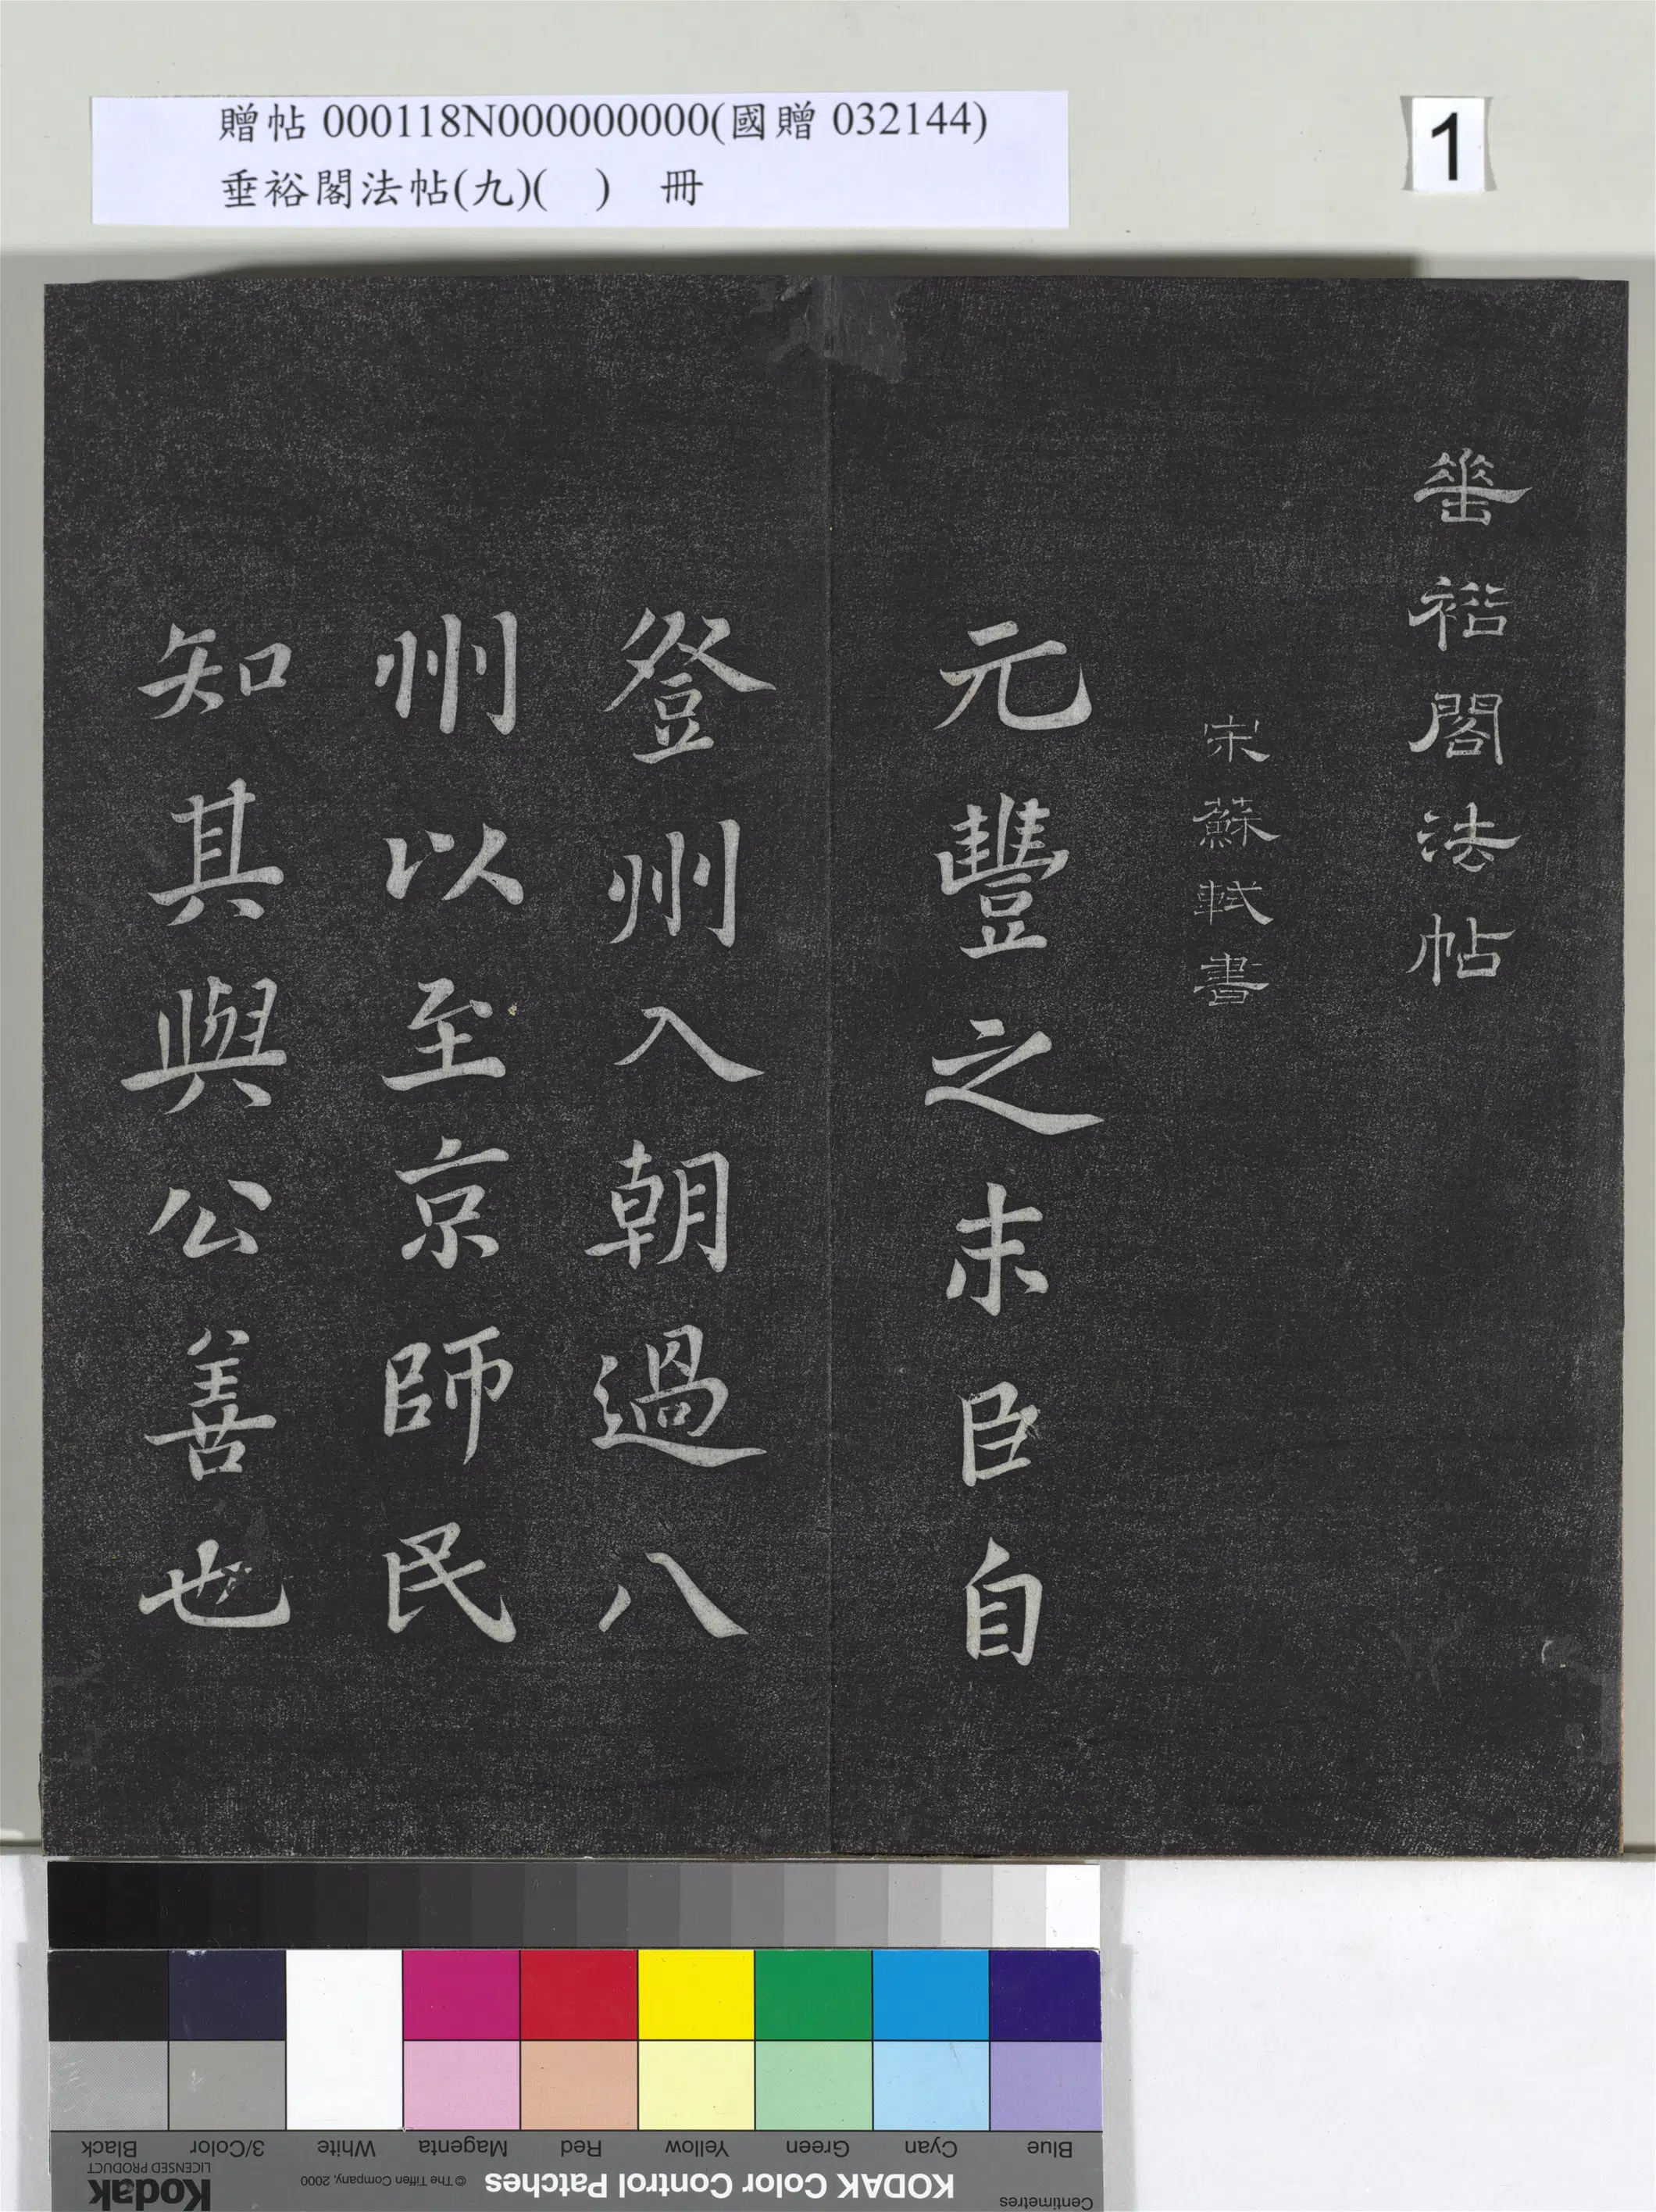 贈帖 000118N000000000(國贈 032144)
垂裕閣法帖(九)( ) 冊
1
垂裕閣法帖
宋蘇軾書
元豐之末臣自
登州入朝過八
州以至京師民
知其與公善也
Blue Cyan Green Yellow Red Magenta White 3/Color Black
Centimetres KODAK Color Control Patches © The Tiffen Company, 2000 Kodak
LICENSED PRODUCT